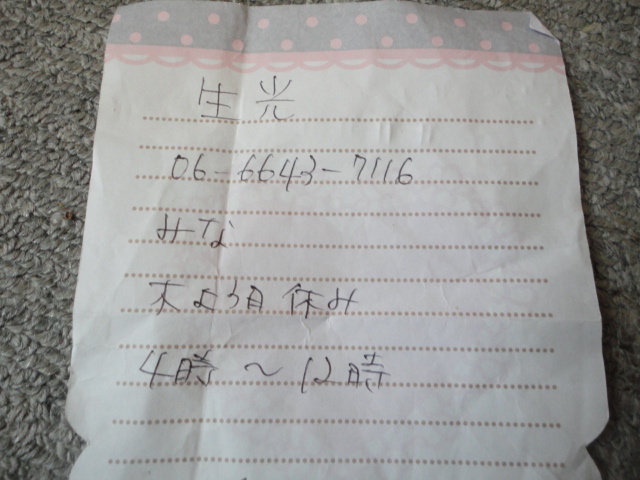 生光
06-6643-7116
みな
木よう日 休み
4時〜12時